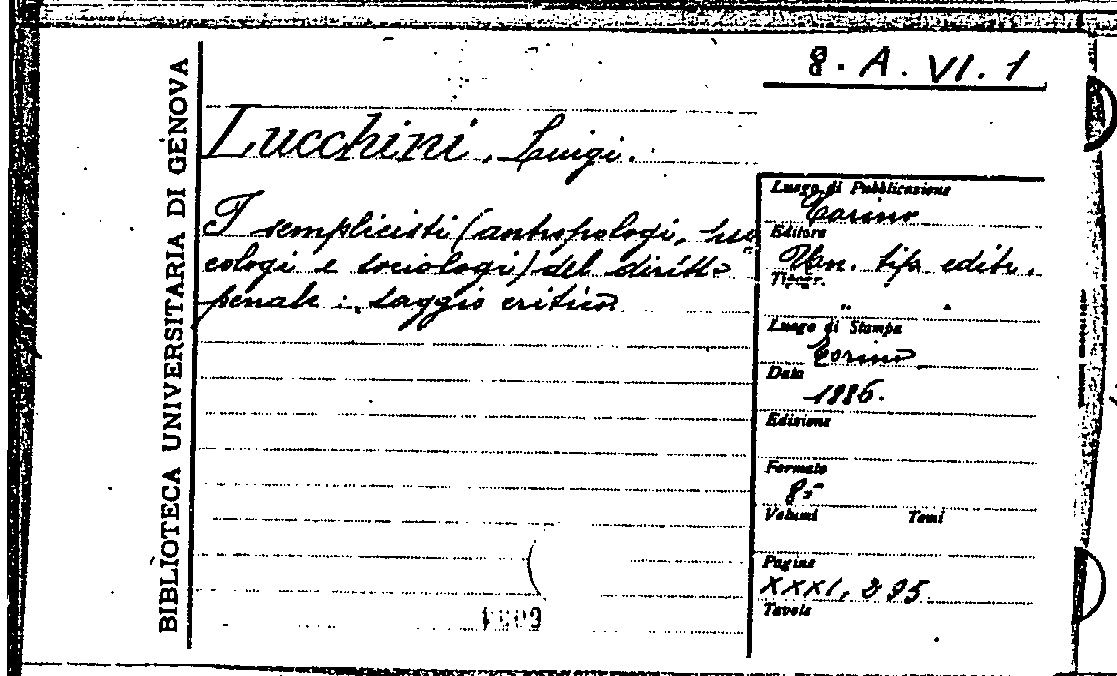 BIBLIOTECA UNIVERSITARIA DI GENOVA
8. A. VI. 1
Lucchini, Luigi.
I semplicisti (antropologi, psi
cologi e sociologi) del diritto
penale: saggio critico
Luogo di Pubblicazione
Torino
Editore
Un. tip. editr.
Tipogr.
" "
Luogo di Stampa
Torino
Data
1886.
Edizione
Formato
8°
Volumi Tomi
Pagine
XXXI, 295
Tavole